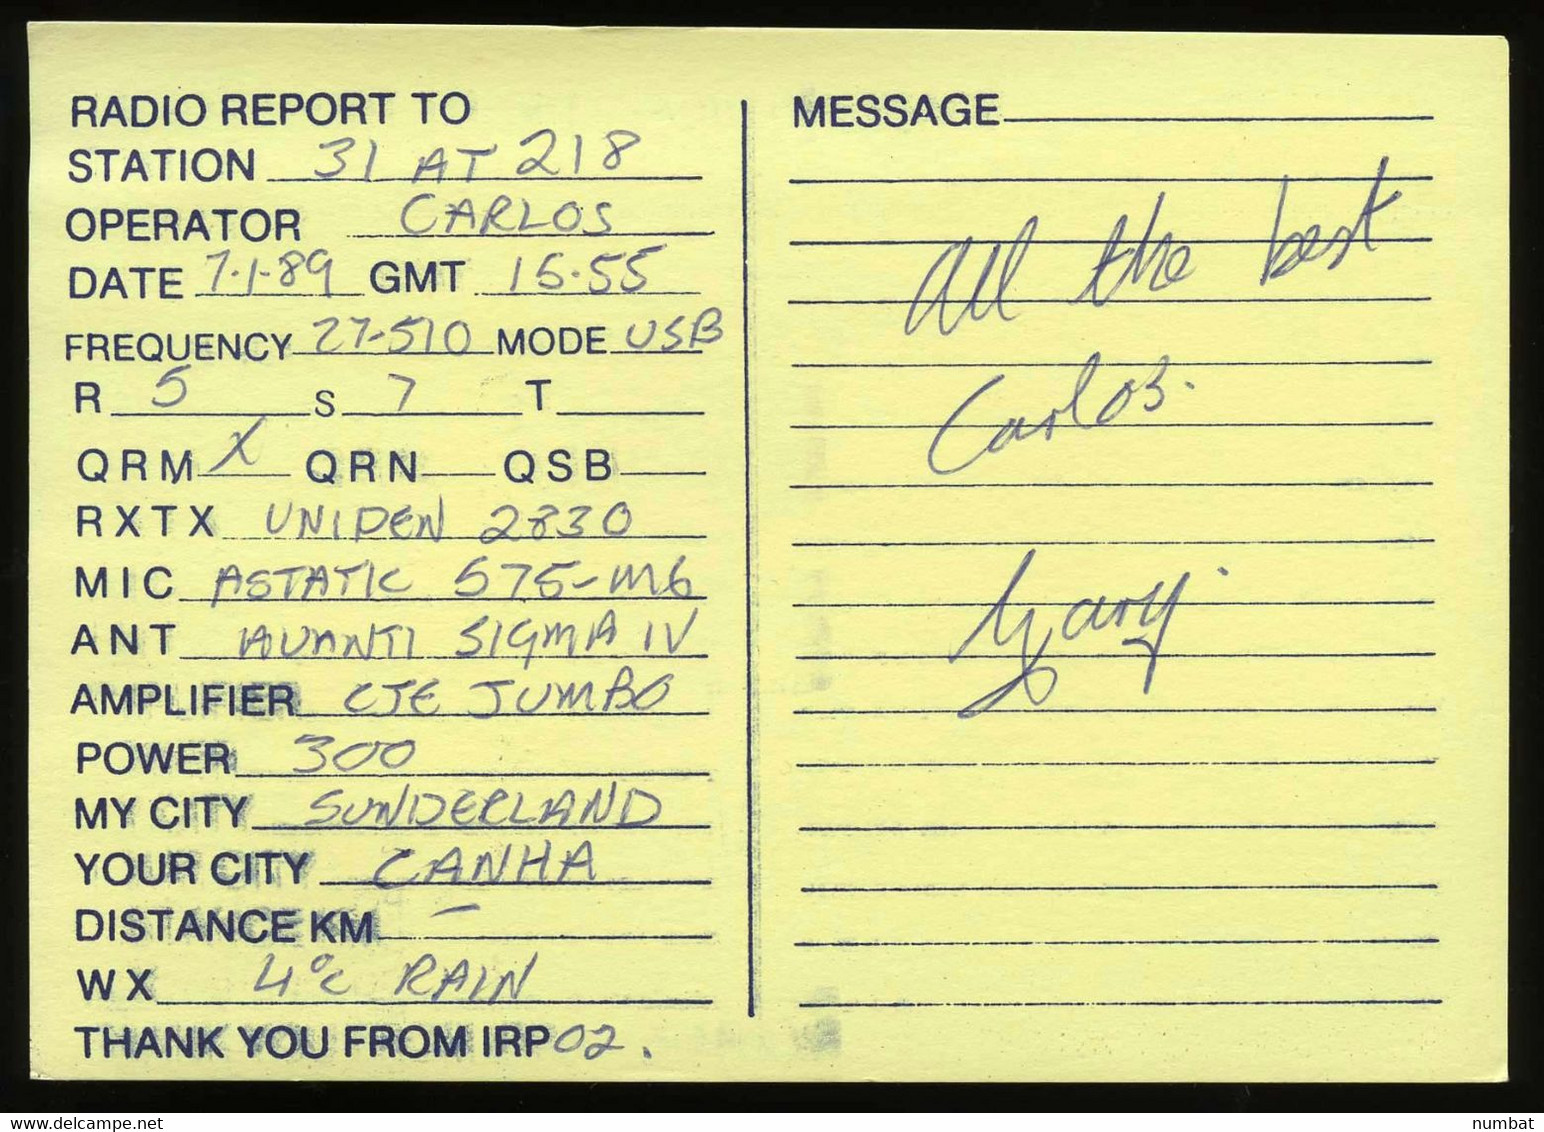 RADIO REPORT TO
STATION 31 AT 218
OPERATOR CARLOS
DATE 7·1·89 GMT 15·55
FREQUENCY 27-510 MODE USB
R 5 S 7 T
QRM X QRN QSB
RXTX UNIDEN 2830
MIC ASTATIC 575-M6
ANT AVANTI SIGMA IV
AMPLIFIER CTE JUMBO
POWER 300
MY CITY SUNDERLAND
YOUR CITY CANHA
DISTANCE KM –
WX 4°C RAIN
THANK YOU FROM IRP02.
MESSAGE
All the best
Carlos.
Gary.
www.delcampe.net
numbat